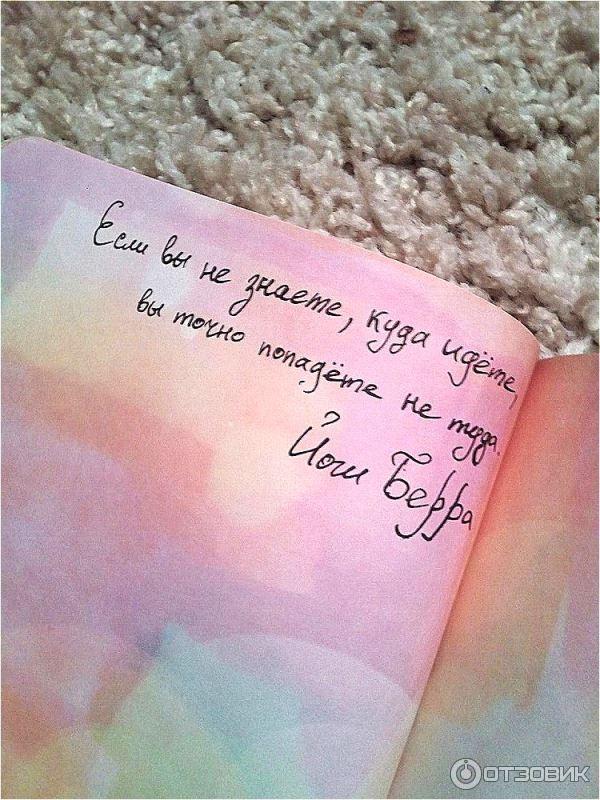 Если вы не знаете, куда идёте,
вы точно попадёте не туда.
Йоги Берра
ОТЗОВИК